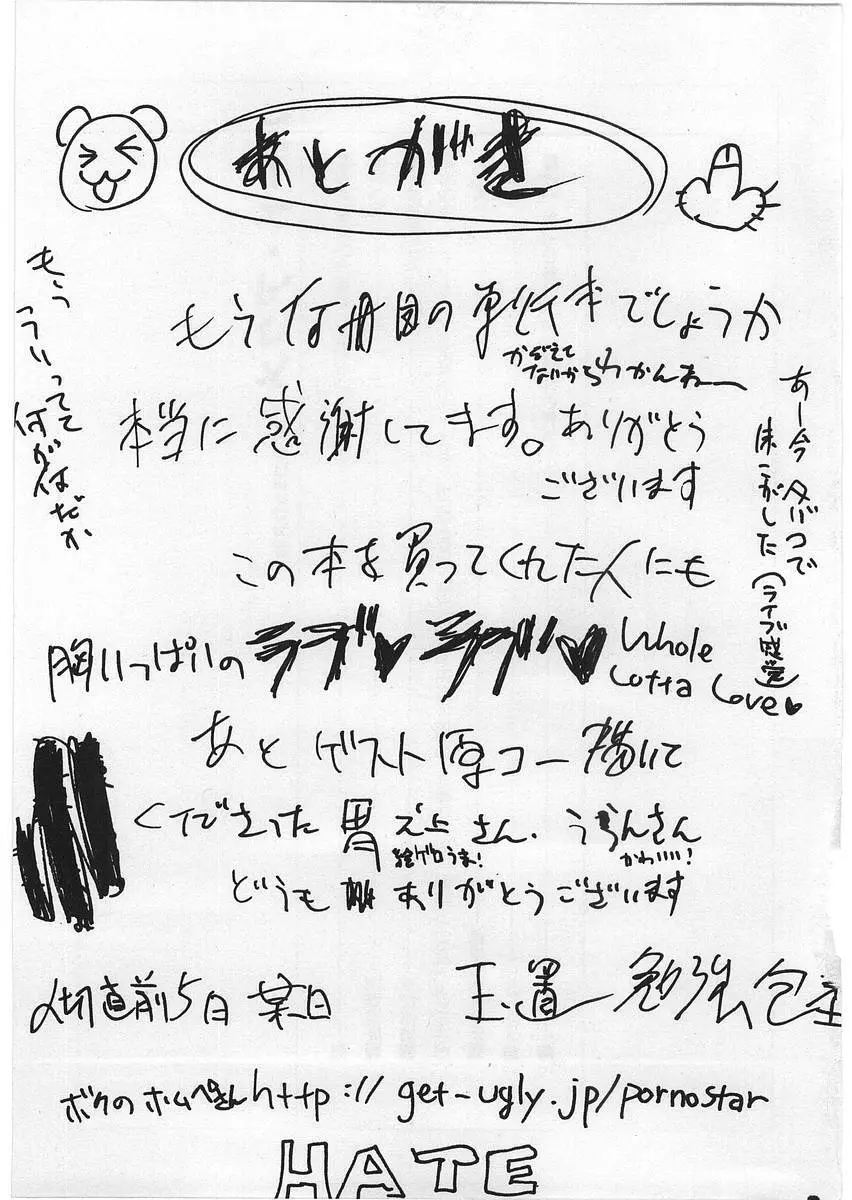 あとがき
もう何冊目の単行本でしょうか
かぞえて
ないからわかんねー
本当に感謝してます。ありがとう
ございます
この本を買ってくれた人にも
胸いっぱいのラブ♥ラブ♥ Whole
Lotta Love♥
あとゲスト原コー描いて
くださった胃之上さん、うらんさん
絵ゲロうま! かわいい!
どうもありがとうございます
〆切直前5日 某日 玉置勉強
ボクのホムペさん http://get-ugly.jp/pornostar
HATE
もう
こういってて
何が何だか
あー今タバコで
床こがした(ライブ感覚)